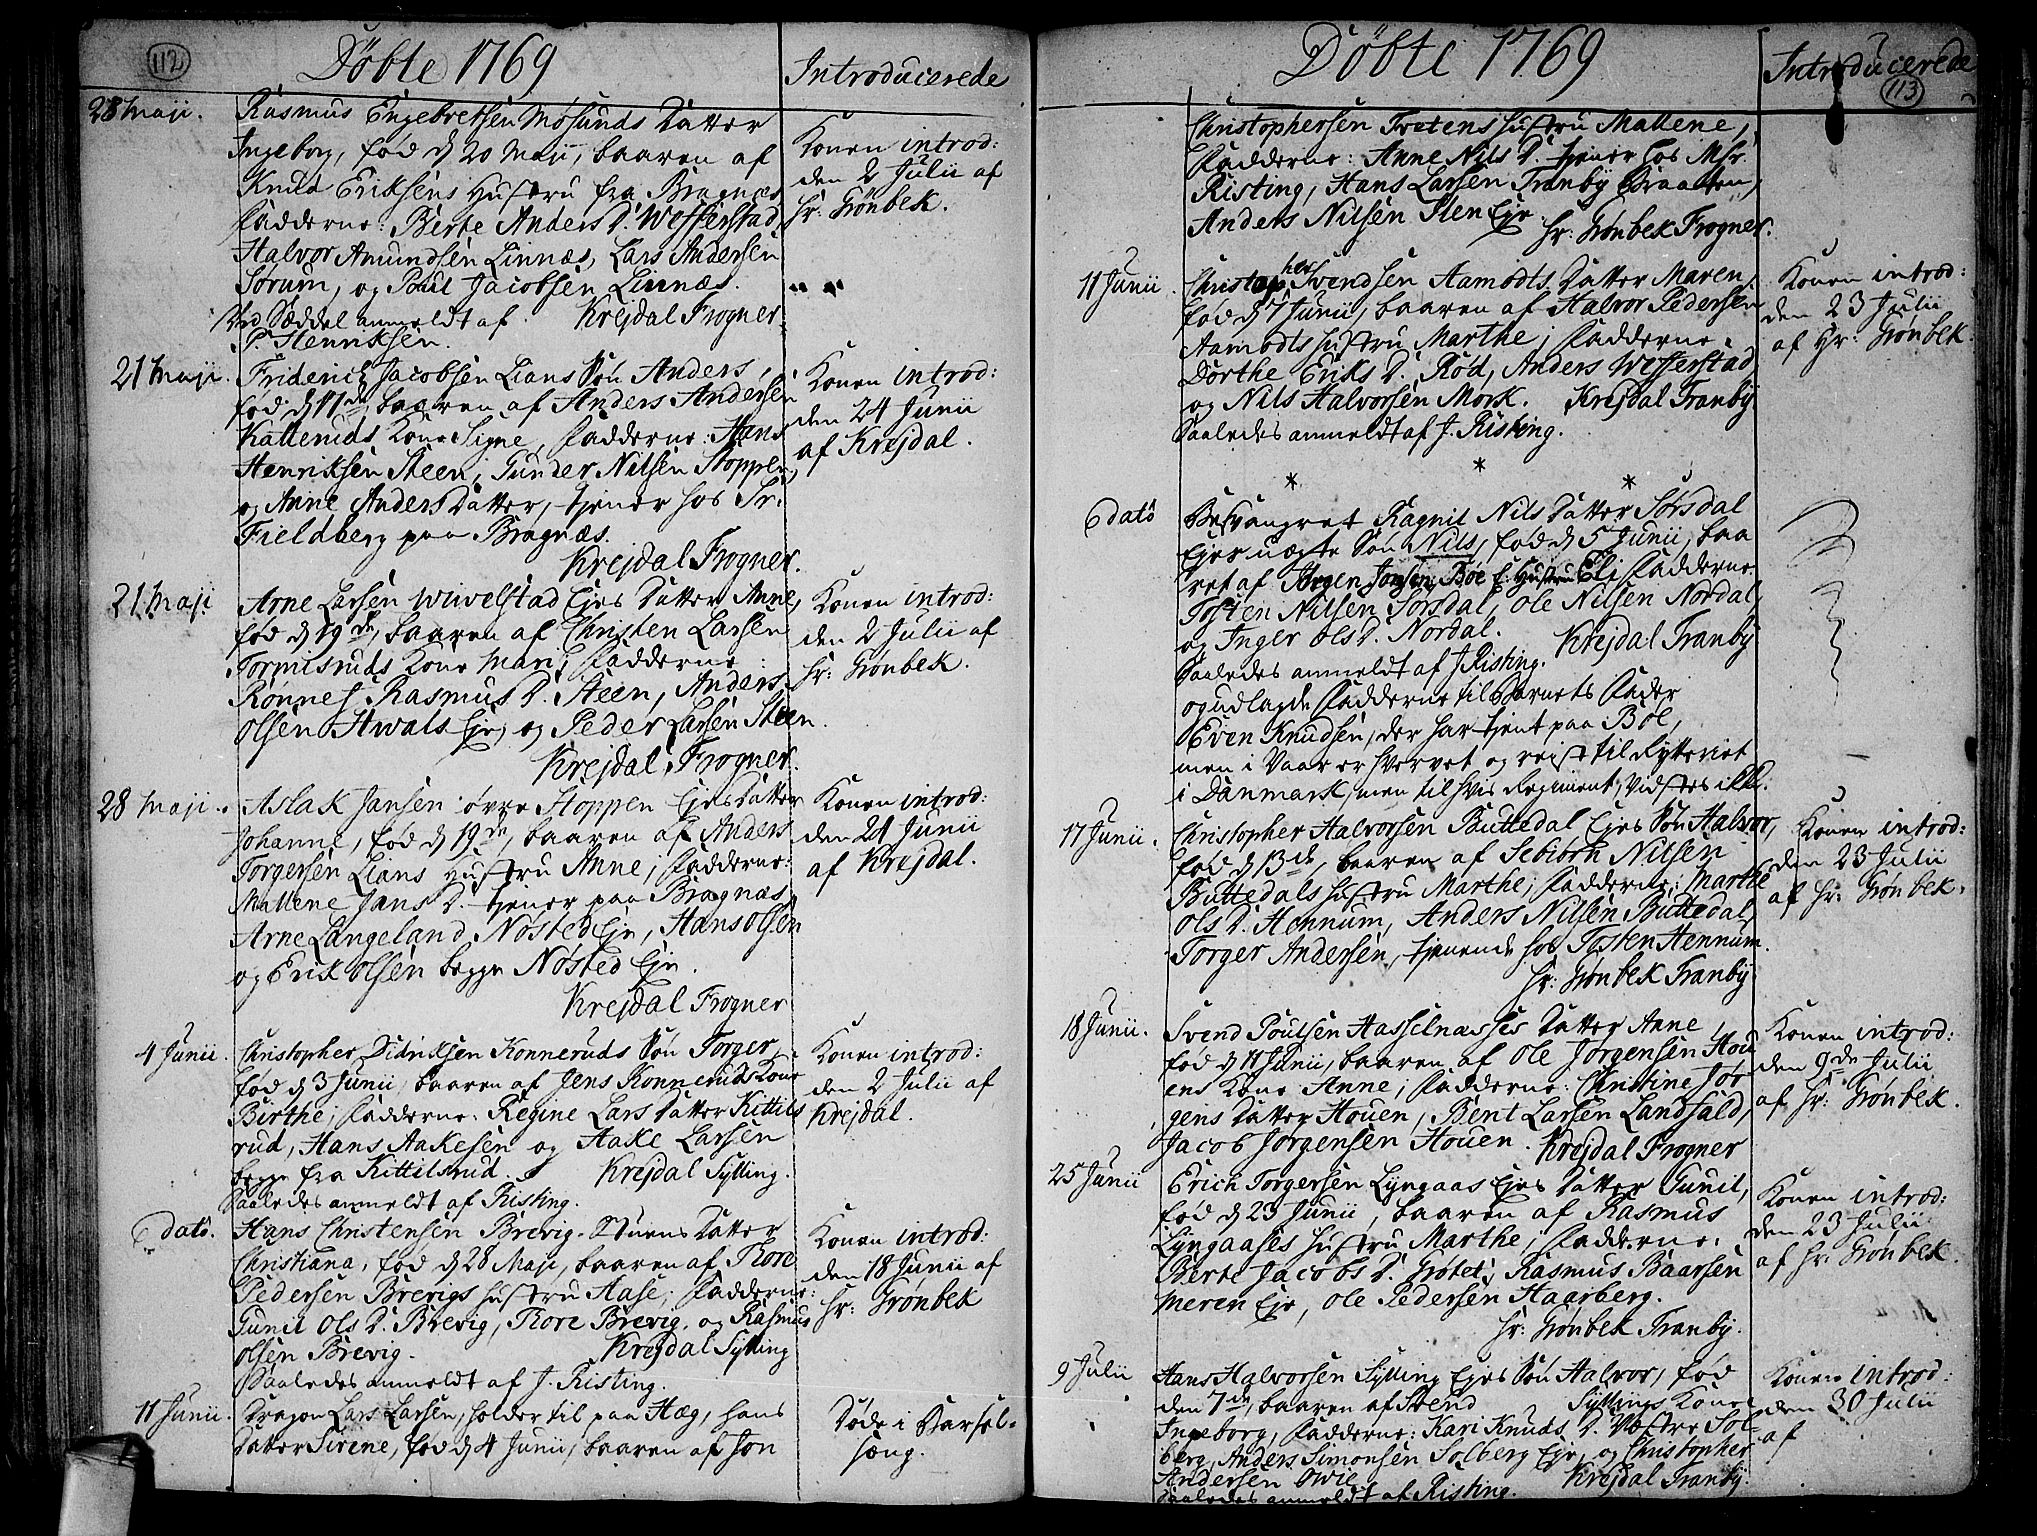 112
Döbte 1769
Introducerede
28 Maji.
Rasmus Engebretsen Mösunds Datter
Ingeborg, föd d 20 Maji, baaren af
Knud Eriksens Hustru fra Bragnæs
Fadderne: Berte Anders D. Wefferstad,
Halvor Amundsen Linnæs, Lars Andersen
Sörum, og Poul Jacobsen Linnæs.
Ved Sæddel anmeldt af Krejdal Frogner.
P. Henriksen.
Konen introd:
den 2 Julii af
Hr: Grönbek.
21 Maji.
Friderich Jacobsen Lians Sön Anders,
föd d 17de, baaren af Anders Andersen
Kalleruds Kone Signe, Fadderne: Hans
Henriksen Steen, Gunder Nilsen Stoppen,
og Anne Anders Datter, tjener hos Sr.
Fieldberg paa Bragnæs.
Krejdal Frogner.
Konen introd:
den 24 Junii
af Krejdal.
21 Maji
Arne Larsen Wiwelstad Ejes Datter Anne,
föd d 19de, baaren af Christen Larsen
Tormisruds Kone Mari; Fadderne:
Rönnes Rasmus D. Steen, Anders
Olsen Hwals Eje, og Peder Larsen Steen.
Krejdal, Frogner.
Konen introd:
den 2 Julii af
Hr: Grönbek.
28 Maji.
Aslak Jansen övre Stoppen Ejes Datter
Johanne, föd d 19de, baaren af Anders
Torgersen Lians Hustru Anne; Fadderne:
Mallene Jans D. tjener paa Bragnæs,
Arne Langeland Nösted Eje, Hans Olsen
og Erik Olsen begge Nösted Eje.
Krejdal Frogner
Konen introd:
den 24 Junii
af Krejdal.
4 Junii.
Christopher Didriksen Konneruds Sön Torger
föd d 3 Junii, baaren af Jens Konneruds Kone
Birthe; Fadderne: Regine Lars Datter Kittils
rud, Hans Aakesen og Aake Larsen
begge fra Kittilsrud. Krejdal Sylling.
Saaledes anmeldt af Risting.
Konen introd:
den 2 Julii af
Krejdal.
E dato.
Hans Christensen Brevig-Stuens Datter
Christiana, föd d 28 Maji, baaren af Tore
Pedersen Brevigs Hustru Aase; Fadderne:
Gunil Ols D. Brevig, Tore Brevig, og Rasmus
Olsen Brevig. Krejdal Sylling
Saaledes anmeldt af J. Risting.
Konen introd:
den 18 Junii af
Hr: Grönbek
11 Junii.
Dragon Lars Larsen, holder til paa Hæg, hans
Datter Sirene, föd d 4 Junii, baaren af Jon
Döde i Barsel-
sæng.
Döbte 1769
Introducerede
113
Christophersen Tvetens Hustru Mallene,
Fadderne: Anne Nils D. tjener hos Mhr.
Risting, Hans Larsen Tranby Braaten,
Anders Nilsen Sten Eje.
Hr: Grönbek Frogner.
11 Junii.
Christopher Svendsen Aamodts Datter Maren,
föd d 7 Junii, baaren af Halvor Pedersen
Aamodts Hustru Marthe; Fadderne:
Dorthe Eriks D. Röd, Anders Wefferstad
og Nils Halvorsen Mork. Krejdal Tranby
Saaledes anmeldt af J. Risting.
Konen introd:
den 23 Julii
af Hr: Grönbek.
* * *
E dato
Besvangret Ragnil Nils Datter Sörsdal
Ejes uægte Sön Nils, föd d 5 Junii, baa
ret af Jörgen Jonsen Böe E: Hustru Eli Fadderne
Tosten Nilsen Sörsdal, Ole Nilsen Nordal,
og Inger Ols D. Nordal. Krejdal Tranby
Saaledes anmeldt af J Risting.
og udlagde Fadderne til Barnets Fader
Even Knudsen, der har tjent paa Böe,
men i Vaar er hvervet og rejst til Rytteriet
i Danmark, men til hvis Regiment, vidstes ikke.
17 Junii.
Christopher Halvorsen Buttedal Ejes Sön Halvor,
föd d 13de, baaren af Sebiörn Nilsen
Buttedals Hustru Marthe; Fadderne: Marthe
Ols D. Hennum, Anders Nilsen Buttedal,
Torger Andersen, tjenende hos Tosten Hennum.
Hr: Grönbek Tranby
Konen introd:
den 23 Julii
af Hr: Grönbek.
18 Junii.
Svend Poulsen Hasselnæsses Datter Anne
föd d 11 Junii, baaren af Ole Jörgensen Hou
ens Kone Anne; Fadderne: Christine Jör
gens Datter Houen, Bent Larsen Landfald,
Jacob Jörgensen Houen. Krejdal Frogner
Konen introd:
den 9de Julii
af Hr: Grönbek.
25 Junii
Erich Torgersen Lyngaas Ejes Datter Gunil,
föd d 23 Junii, baaren af Rasmus
Lyngaases Hustru Marthe; Fadderne:
Berte Jacobs D. Grötet, Rasmus Baarsen
Meren Eje, Ole Pedersen Haarberg.
Hr: Grönbek Tranby.
Konen introd:
den 23 Julii
af Hr: Grönbek.
9 Julii
Hans Halvorsen Sylling Ejes Sön Halvor, föd
den 7de, baaren af Svend Syllings Kone
Ingeborg, Fadderne: Kari Knuds D. Vestre Sol-
berg, Anders Simonsen Solberg Eje, og Christopher
Andersen Owie Krejdal Tranby.
Saaledes anmeldt af Risting.
Konen introd:
den 30 Julii
af